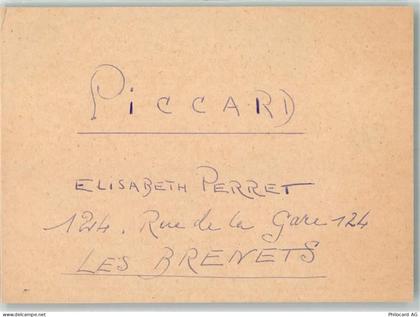 PICCARD
ELISABETH PERRET
124, Rue de la Gare 124
LES BRENETS
www.delcampe.net
Philocard AG